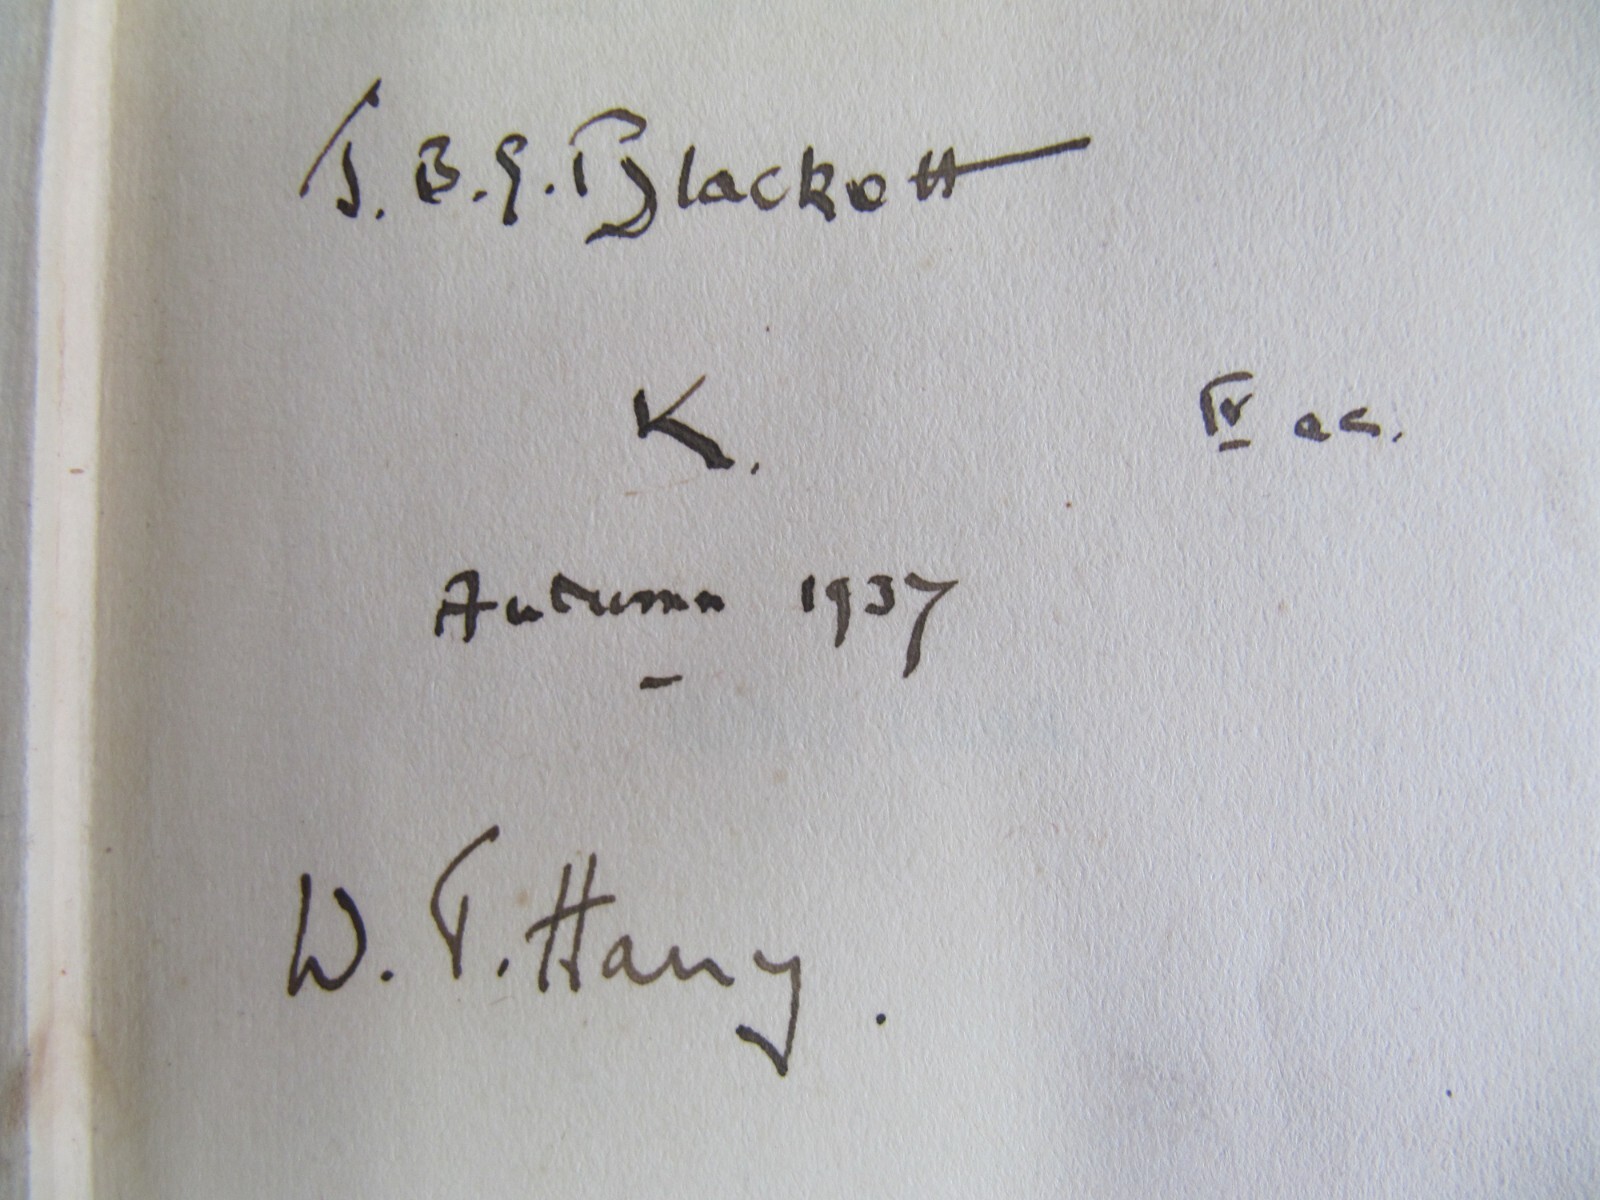 J. B. G. Blackett
K. IV ac.
Autumn 1937
W. T. Harry.